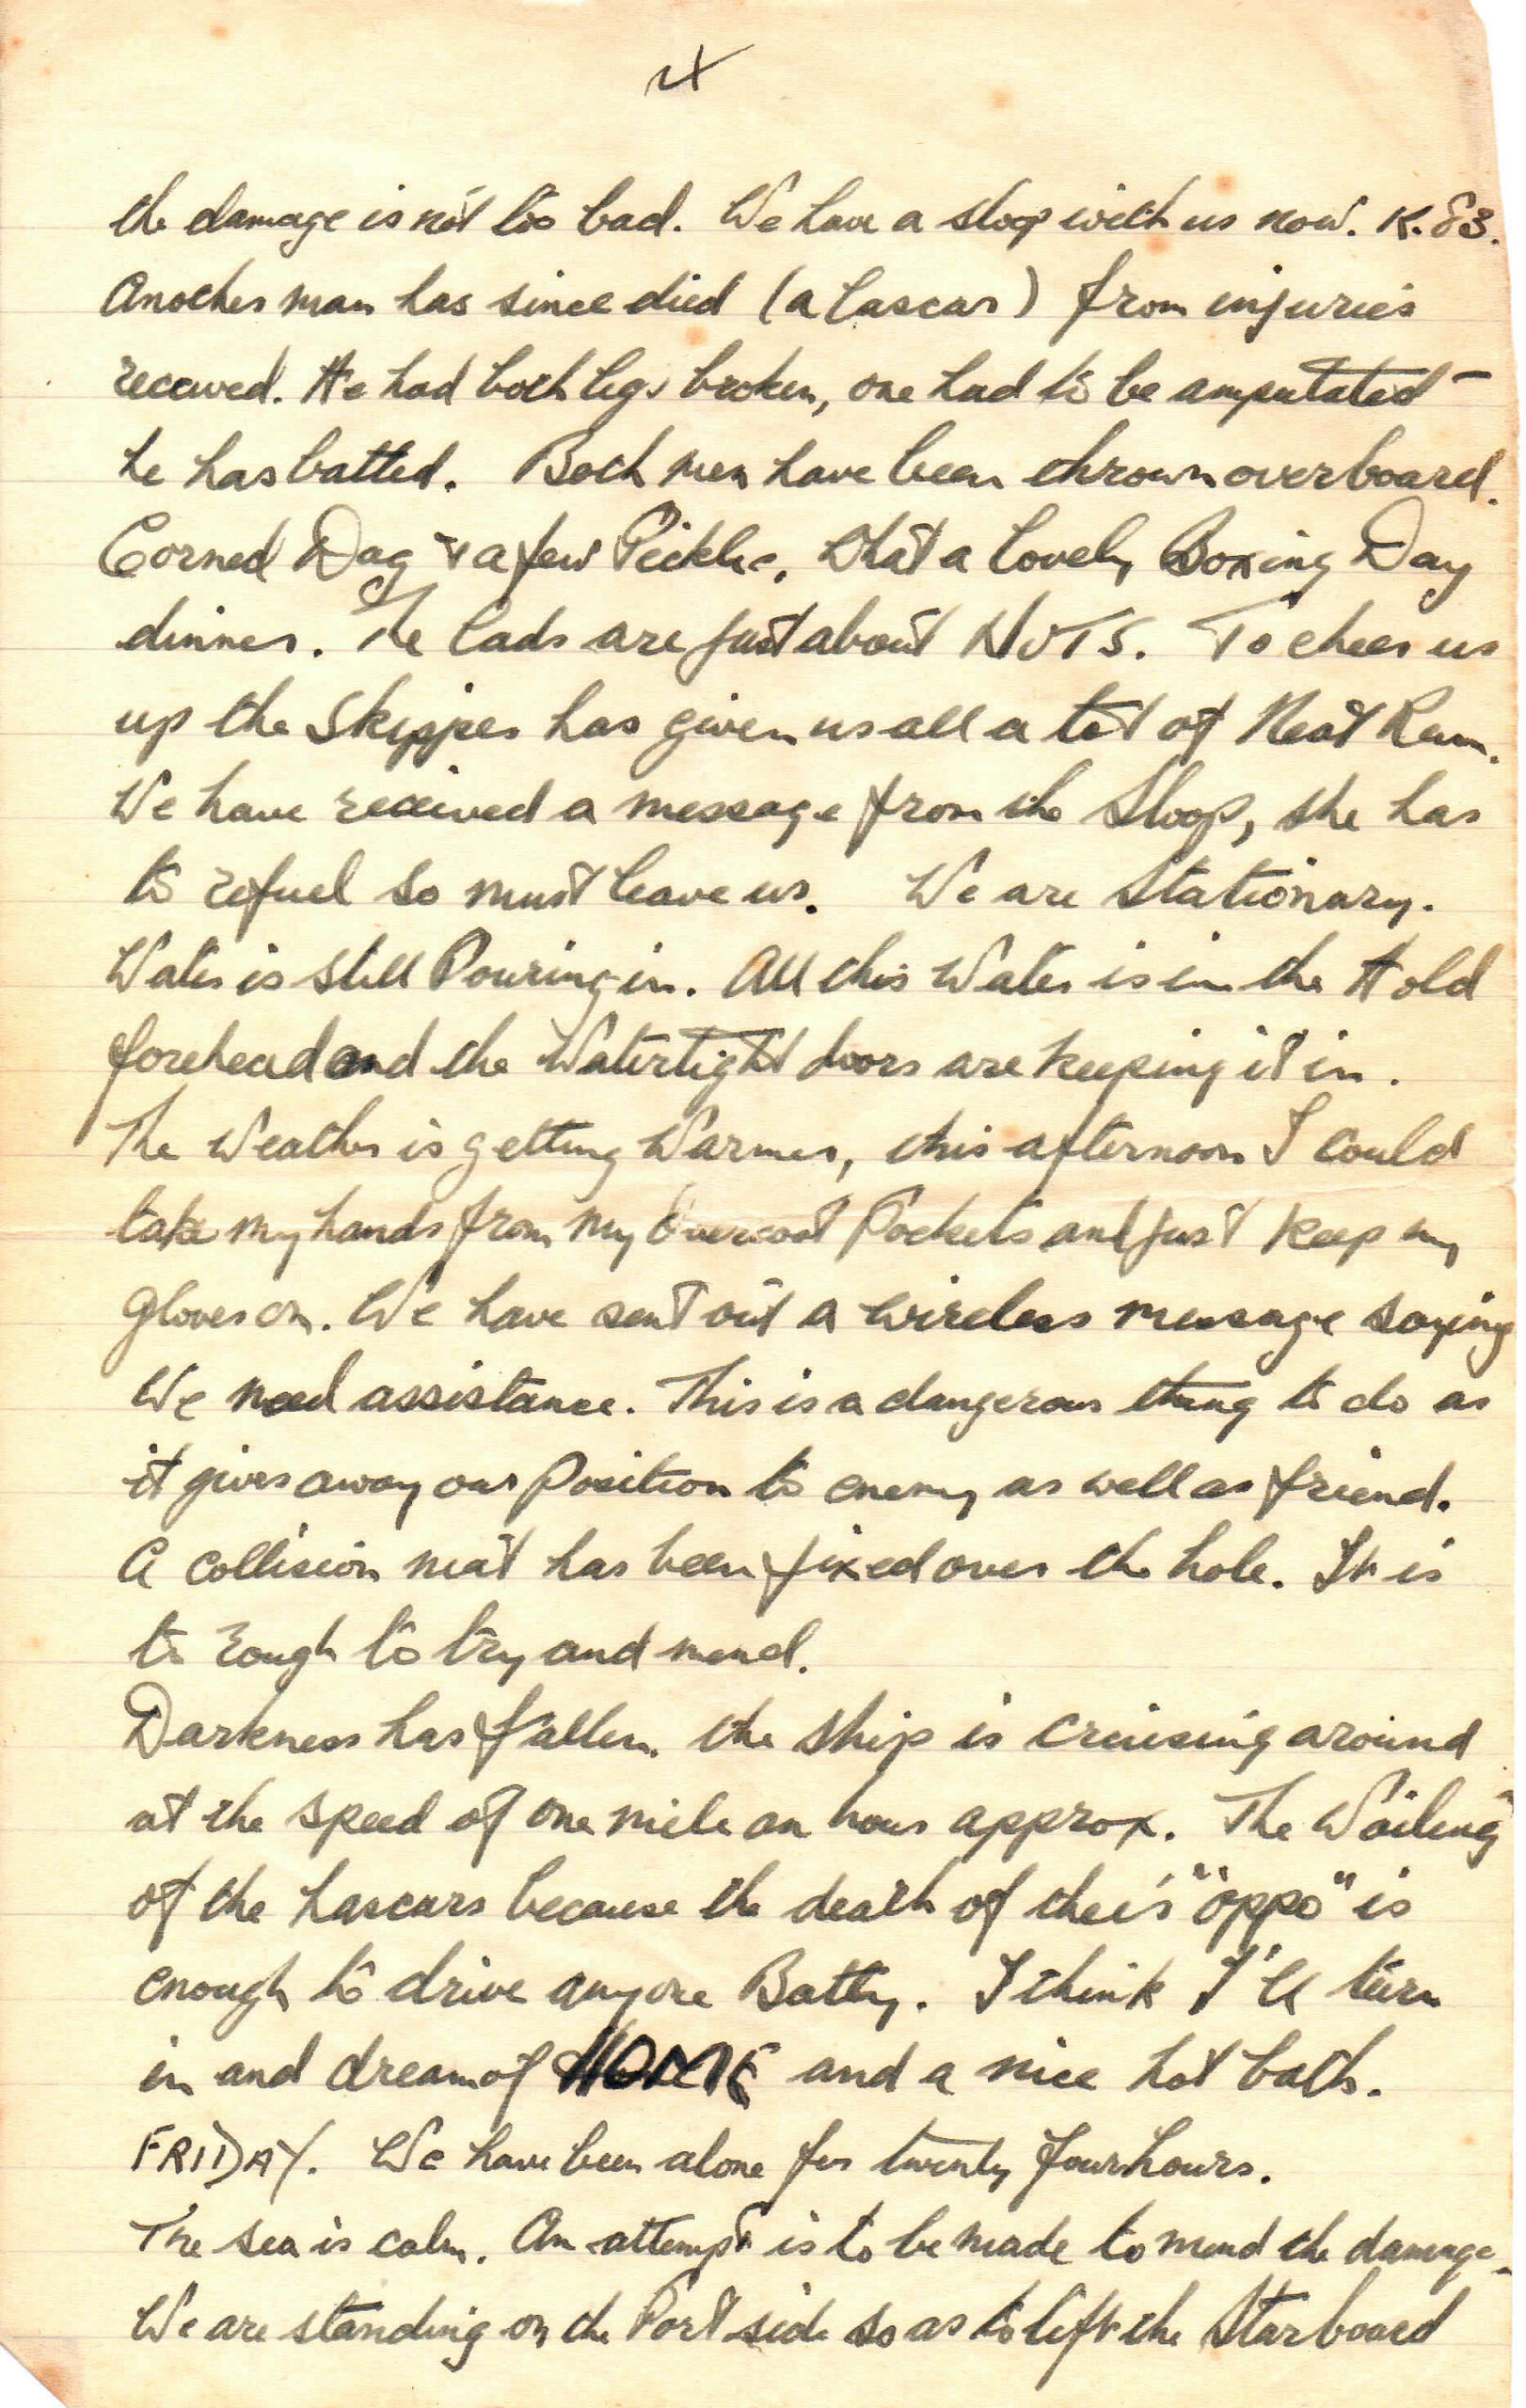 4
the damage is not too bad. We have a sloop with us now. K.83.
Another man has since died (a lascar) from injuries
received. He had both legs broken, one had to be amputated -
he has batted. Both men have been thrown overboard.
Corned Dog & a few Pickles, What a lovely Boxing Day
dinner. The lads are just about NUTS. To cheer us
up the Skipper has given us all a tot of Neat Rum.
We have received a message from the Sloop, she has
to refuel so must leave us. We are Stationary.
Water is still Pouring in. All this Water is in the Hold
forehead and the Watertight doors are keeping it in.
The Weather is getting Warmer, this afternoon I could
take my hands from my Overcoat Pockets and just keep my
gloves on. We have sent out a wireless message saying
We need assistance. This is a dangerous thing to do as
it gives away our Position to enemy as well as friend.
A collision mat has been fixed over the hole. It is
to rough to try and mend.
Darkness has fallen. the ship is cruising around
at the speed of one mile an hour approx. The Wailing
of the Lascars because the death of their "oppo" is
enough to drive anyone Batty. I think I'll turn
in and dream of HOME and a nice hot bath.
FRIDAY. We have been alone for twenty four hours.
The sea is calm. An attempt is to be made to mend the damage.
We are standing on the Port side so as to lift the Starboard